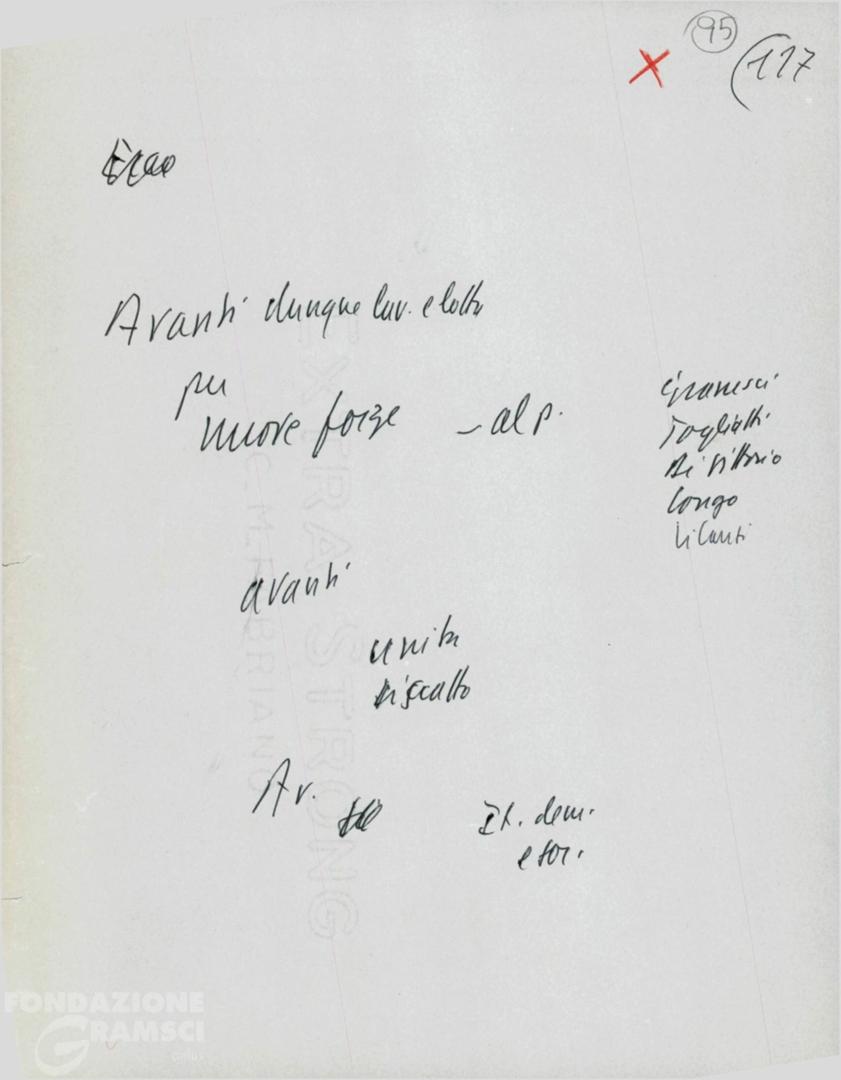 95
(117
Avanti dunque lav. e lotta
per
nuove forze – al p.
Gramsci
Togliatti
Di Vittorio
Longo
Li Causi
avanti
unità
riscatto
Av.
It. dem.
e soc.
EXTRA STRONG
C. M. FABRIANO
FONDAZIONE
GRAMSCI